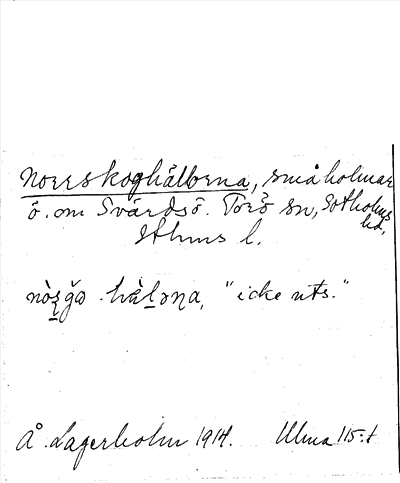 Norrskoghällorna, små holmar
ö. om Svärdsö. Torö sn, Sotholms
hd,
Sthlms l.
"icke uts."
Å. Lagerholm 1914. Ulma 115:1